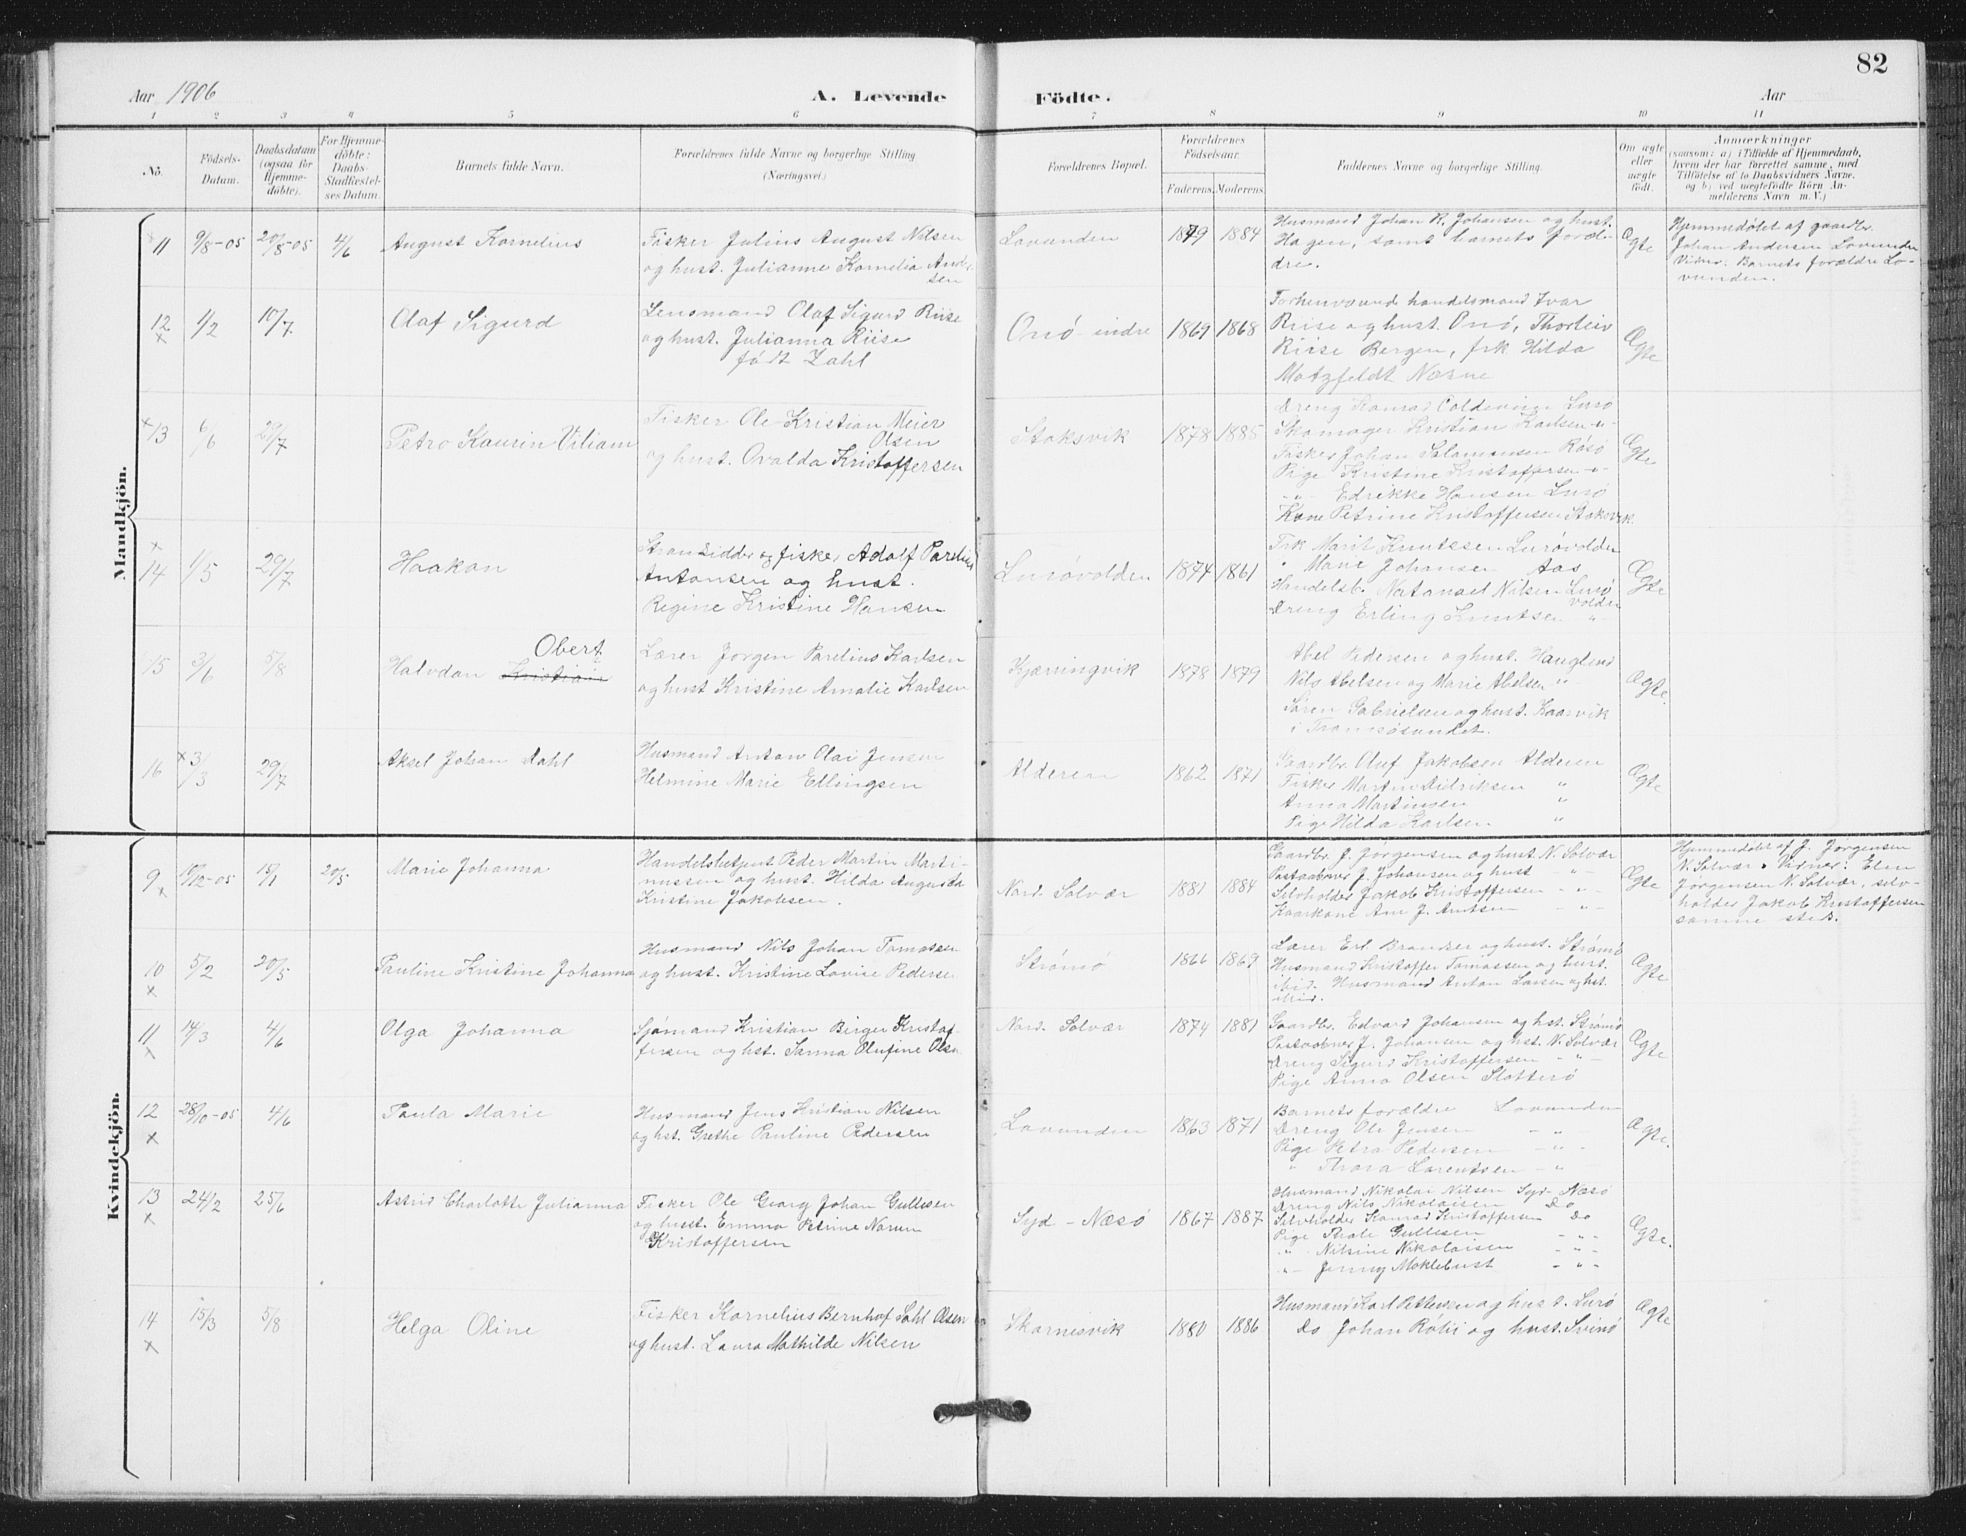 82
Aar 1906
A. Levende Födte.
Aar
1 2 3 4 5 6 7 8 9 10 11
No.
Födsels-Datum.
Daabsdatum (ogsaa for Hjemme-döbte).
For Hjemme-döbte: Daabs-Stadfæstel-ses Datum.
Barnets fulde Navn.
Forældrenes fulde Navne og borgerlige Stilling (Næringsvei.)
Forældrenes Bopæl.
Forældrenes Födselsaar.
Faderens. Moderens.
Faddernes Navne og borgerlige Stilling.
Om ægte eller uægte födt.
Anmærkninger
(saasom: a) i Tilfælde af Hjemmedaab, hvem der har forrettet samme, med Tilföielse af to Daabsvidners Navne, og b) ved uægtefödte Börn An-melderens Navn m. V.)
Mandkjön.
11 9/8-05 20/8-05 4/6 August Kornelius
Fisker Julius August Nilsen
og hust. Julianne Kornelia Andr-
sen
Lovunden 1879 1884
Husmand Johan R. Johansen og hust.
Hagen, samt barnets foræl-
dre.
Ægte
Hjemmedøbt af gaardbr.
Johan Andersen Lovunden
Vidner: Barnets forældre Lo-
vunden.
12 1/2 10/7 Olaf Sigurd
Lensmand Olaf Sigurd Riise
og hust. Julianna Riise
født Zahl
Onø indre 1869 1868
Forhenværende handelsmand Ivar
Riise og hust. Onø, Thorleiv
Riise Bergen, frk Hilda
Motzfeldt Næsne
Ægte
13 6/6 29/7 Petro Kaurin Viliam
Fisker Ole Kristian Meier
Olsen
og hust. Ovalda Kristoffersen
Stoksvik 1878 1885
Dreng Konrad Coldevin Lurø
Skomager Kristian Karlsen -"-
Fisker Johan Salamonsen Røsø
Pige Kristine Kristoffersen -"-
-"- Edrikke Hansen Lurø
Kone Petrine Kristoffersen Stoksvik
Ægte
14 1/5 29/7 Haakon
Strandsidder og fisker Adolf Parelius
Antonsen og hust.
Regine Kristine Hansen
Lurøvolden 1874 1861
Frk Marit Knutssen Lurøvolden
" Marie Johansen Aas
Handelsb. Natanael Nilsen Lurø
volden
Dreng Erling Knutsen "
Ægte
15 3/6 5/8 Halvdan Kristian Obert
Lærer Jørgen Parelius Karlsen
og hust Kristine Amalie Karlsen
Kjærringvik 1878 1879
Abel Pedersen og hust. Haugland
Nils Abelsen og Marie Abelsen "
Søren Gabrielsen og hust. Kaarvik
i Tromsøsundet.
Ægte.
16 3/3 29/7 Aksel Johan Dahl
Husmand Anton Olai Jensen
Helmine Marie Ellingsen
Alderen 1862 1871
Gaardbr. Oluf Jakobsen Alderen
Fisker Martin Didriksen "
Anna Martinsen
Pige Hilda Karlsen "
Ægte
Kvindekjön.
9 19/12-05 15/1 20/5 Marie Johanna
Handelsbetjent Peder Martin Marti-
nussen og hust. Hilda Augusta
Kristine Jakobsen.
Nord. Solvær 1881 1884
Gaardbr. J. Jørgensen og hust. N. Solvær
Postaabner J. Johansen og hust - " -
Selvholder Jakob Kristoffersen - " -
Kaarkone Ane J. Arntsen - " -
Ægte
Hjemmedøbt af J. Jørgensen
N. Solvær. Vidner: Elen
Jørgensen N. Solvær, selv-
holder Jakob Kristoffersen
samme sted.
10 5/2 20/5 Pauline Kristine Johanna
Husmand Nils Johan Tomassen
og hust. Kristine Lovise Pederse
Strømø 1866 1869
Lærer Erl. Brandser og hust. Strømø
Husmand Kristoffer Tomassen og hust.
ibid. Husmand Anton Larsen og hst.
ibid.
Ægte
11 14/3 4/6 Olga Johanna
Sjømand Kristian Birger Kristof-
fersen og hst. Sanna Olufine Olse
Nord. Solvær 1874 1881
Gaardbr. Edvard Johansen og hst. Strømø
Postaabner J. Johansen og hst. N. Solvær
Dreng Sigurd Kristoffersen - " -
Pige Anna Olsen Slotterø
Ægte
12 28/10-05 4/6 Paula Marie
Husmand Jens Kristian Nilsen
og hst. Grethe Pauline Pedersen
Lovunden 1863 1871
Barnets forældre Lovunden
Dreng Ole Jensen - " -
Pige Petra Pedersen - " -
" Thora Lorentsen - " -
Ægte.
13 24/2 25/6 Astrid Charlotte Julianna
Fisker Ole Georg Johan Gullesen
og hust. Emma Petrine Norum
Kristoffersen
Syd-Næsø 1867 1887
Husmand Nikolai Nilsen Syd-Næsø
Dreng Nils Nikolaisen Do
Selvholder Konrad Kristoffersen Do
Pige Thale Gullesen - " -
" Nilsine Nikolaisen - " -
" - Jenny Moklebust - " -
Ægte.
14 15/3 5/8 Helga Oline
Fisker Kornelius Bernhof Dahl Olsen
og hust. Laura Mathilde Nilsen
Skarnesvik 1880 1886
Husmand Karl Pettersen og hust. Lurø
Do Johan Røtii og hust. Svinø
Ægte